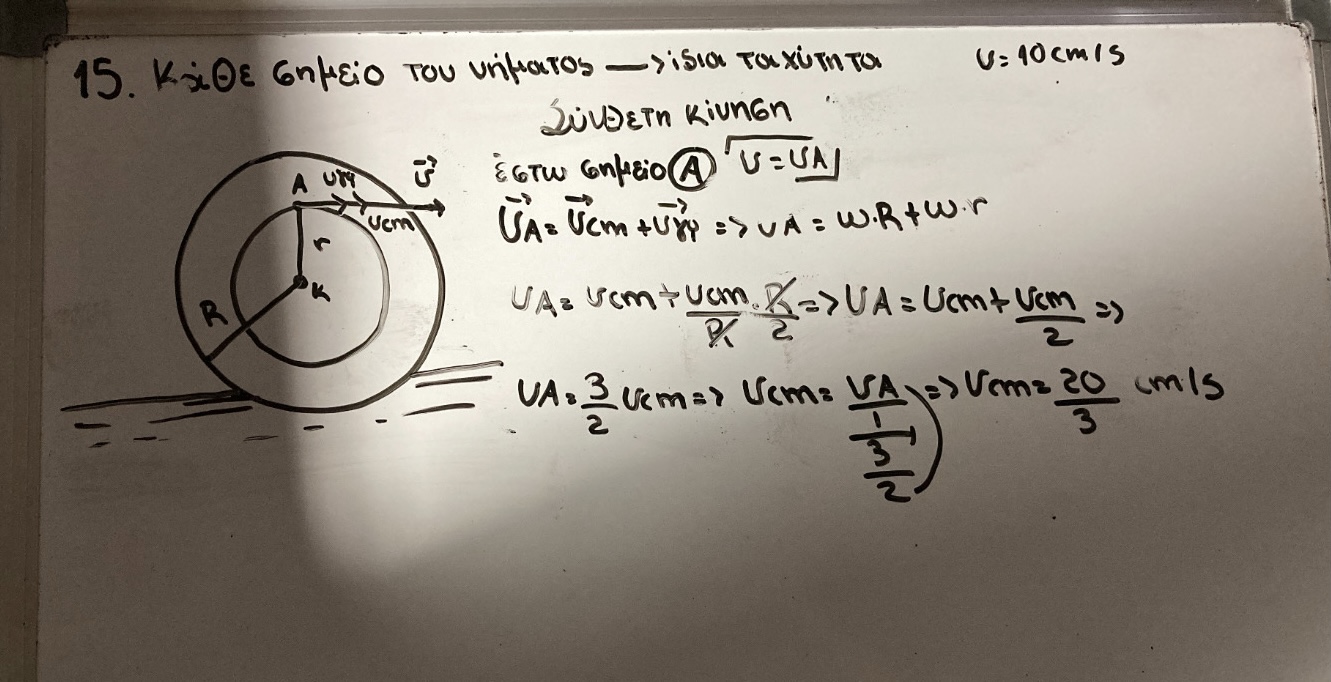 15. Κάθε σημείο του νήματος —> ίδια ταχύτητα υ = 10 cm/s
Σύνθετη κίνηση
έστω σημείο Α υ = υA
A υγρ υ⃗
υcm
r
K
R
υ⃗A = υ⃗cm + υ⃗γρ => υA = ω·R + ω·r
υA = υcm + υcm/R · R/2 => υA = υcm + υcm/2 =>
υA = 3/2 υcm => υcm = υA/1 / 3/2 => υcm = 20/3 cm/s